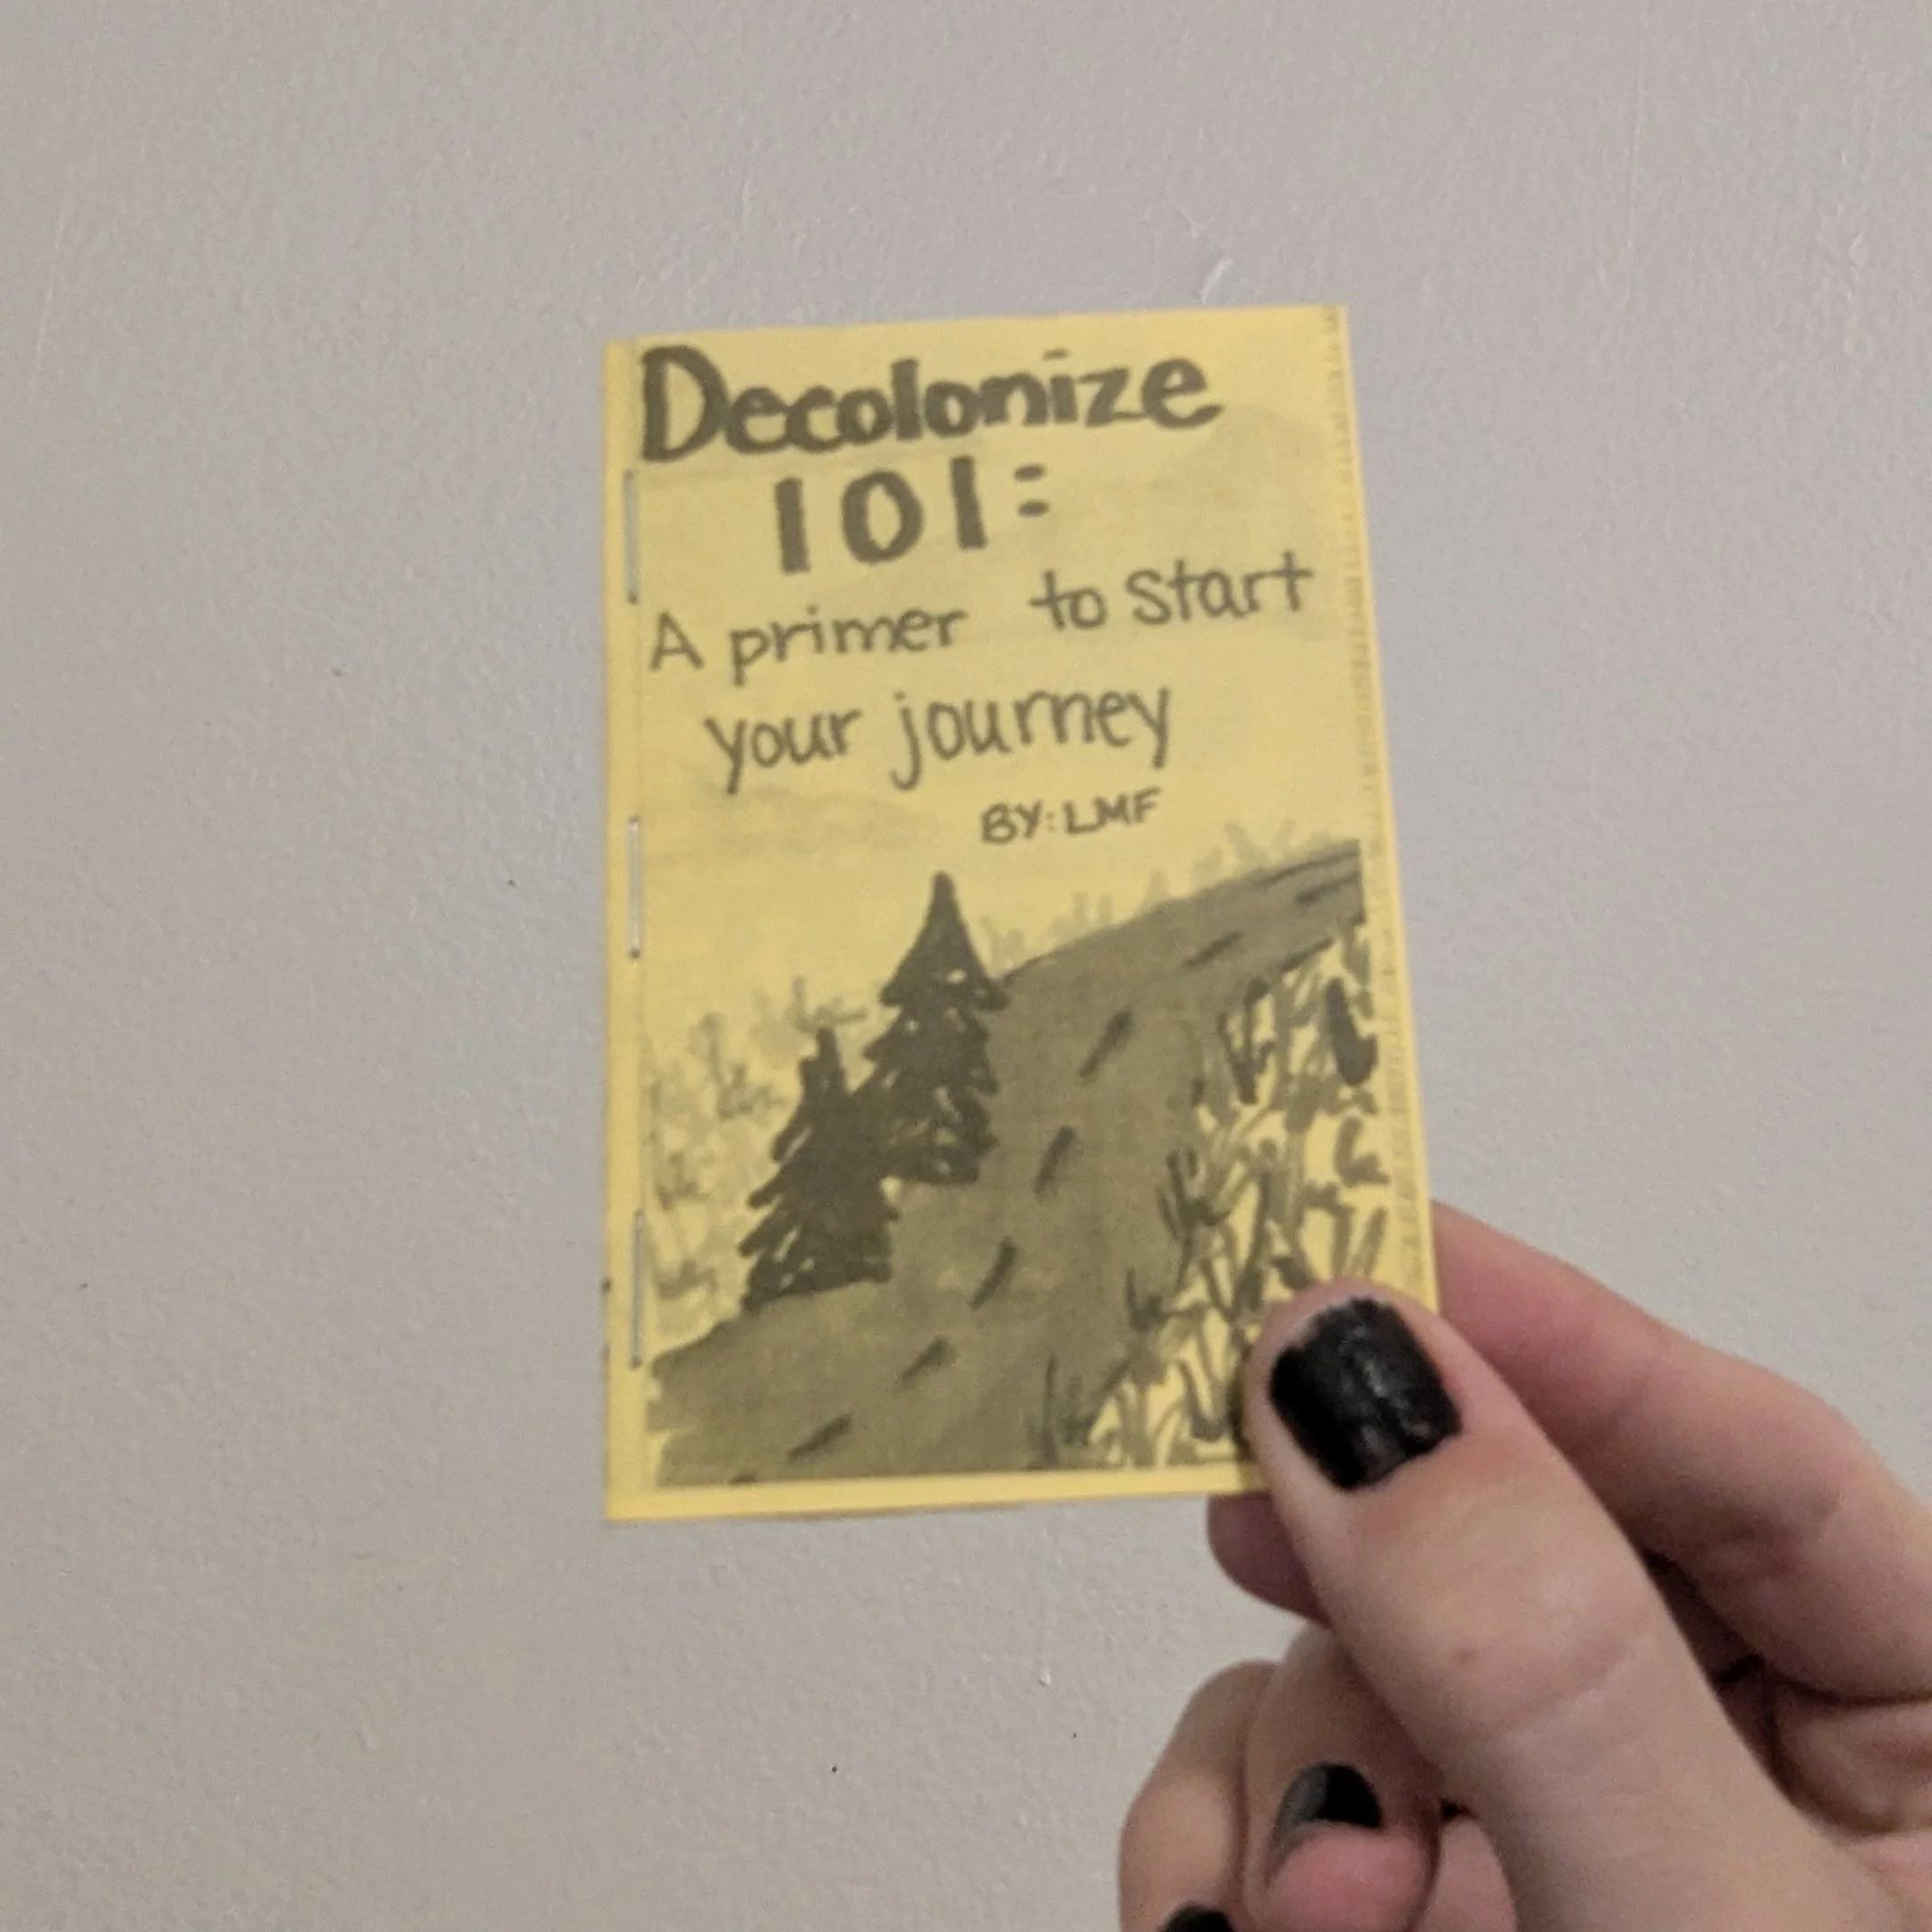 Decolonize
101:
A primer to start
your journey
BY: LMF